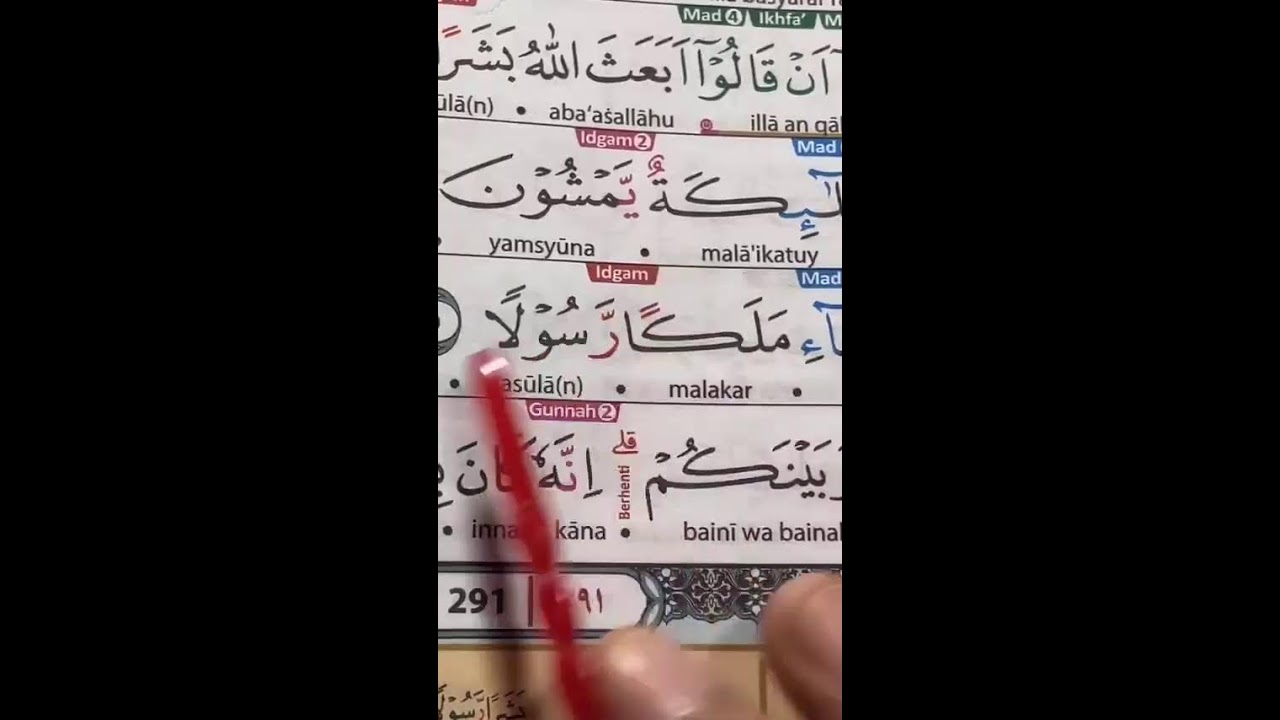 Mad 4 Ikhfa’ M
اَنْ قَالُوْٓا اَبَعَثَ اللّٰهُ بَشَرًا
ūlā(n) • aba‘aṡallāhu illā an qāl
Idgam 2 Mad
يَّمْشُوْنَ
• yamsyūna • malā'ikatuy
Idgam Mad
مَلَكًا رَّسُوْلًا
• asūlā(n) • malakar •
Gunnah 2
وَبَيْنَكُمْ ۗ اِنَّهٗ كَانَ
Berhenti
• inna kāna • bainī wa bainal
291 | ٢٩١
بَشَرًا رَّسُوْلًا